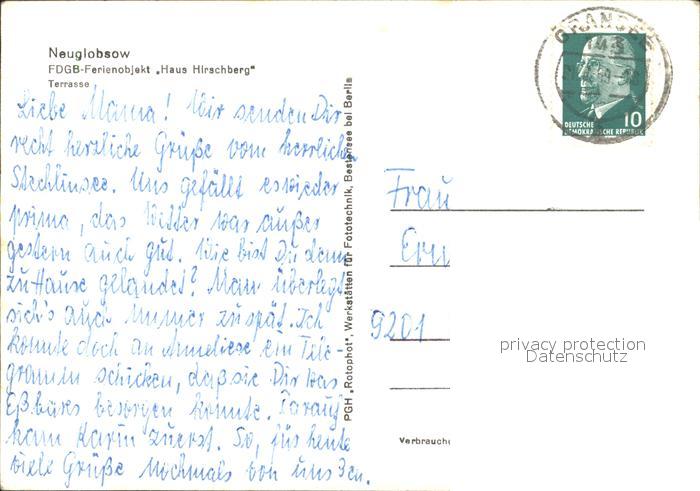 Neuglobsow
FDGB-Ferienobjekt „Haus Hirschberg"
Terrasse
Liebe Mama! Wir senden Dir
recht herzliche Grüße vom herrlichen
Stechlinsee. Uns gefällt es wieder
prima, das Wetter war außer
gestern auch gut. Wie bist Du denn
zu Hause gelandet? Man überlegt
sich's auch immer zu spät. Ich
konnte doch an Anneliese ein Tele-
gramm schicken, daß sie Dir was
Eßbares besorgen konnte. Darauf
kam Karin zuerst. So, für heute
viele Grüße nochmals von uns 3en.
PGH „Rotophot", Werkstätten für Fototechnik, Bestensee bei Berlin
GRANSEE
143
10
DEUTSCHE
DEMOKRATISCHE REPUBLIK
Frau
9201
privacy protection
Datenschutz
Verbrauche